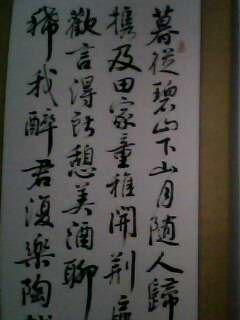 暮從碧山下山月隨人歸
携及田家童稚開荊
歡言得所憩美酒聊
稀我醉君復樂陶